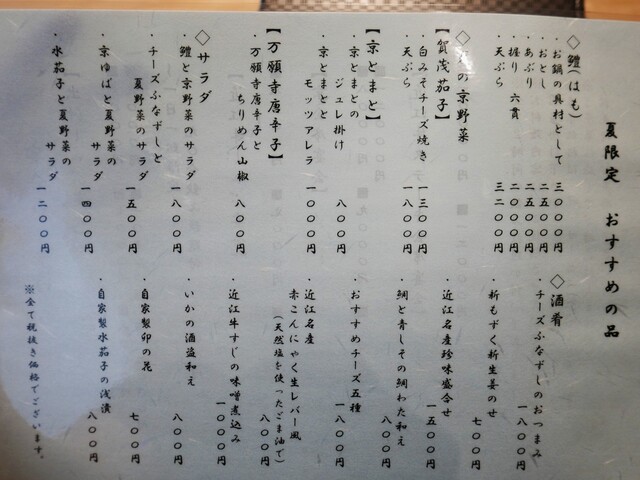 夏限定 おすすめの品
◇鱧(はも)
・お鍋の具材として 三〇〇〇円
・おとし 二五〇〇円
・あぶり 二五〇〇円
・握り 六貫 二〇〇〇円
・天ぷら 三二〇〇円
の京野菜
【賀茂茄子】
・白みそチーズ焼き 一三〇〇円
・天ぷら 一八〇〇円
【京とまと】
・京とまとの
ジュレ掛け 八〇〇円
・京とまとと
モッツアレラ 一〇〇〇円
【万願寺唐辛子】
・万願寺唐辛子と
ちりめん山椒 八〇〇円
◇サラダ
・鱧と京野菜のサラダ 一八〇〇円
・チーズふなずしと
夏野菜のサラダ 一五〇〇円
・京ゆばと夏野菜の
サラダ 一四〇〇円
・水茄子と夏野菜の
サラダ 一二〇〇円
◇酒肴
・チーズふなずしのおつまみ 一八〇〇円
・新もずく新生姜のせ 七〇〇円
・近江名産珍味盛合せ 一五〇〇円
・鯛と青しその鯛わた和え 八〇〇円
・おすすめチーズ五種 一八〇〇円
・近江名産
赤こんにゃく生レバー風
(天然塩を使ったごま油で) 八〇〇円
・近江牛すじの味噌煮込み 一〇〇〇円
・いかの酒盗和え 八〇〇円
・自家製卯の花 七〇〇円
・自家製水茄子の浅漬 八〇〇円
※全て税抜き価格でございます。